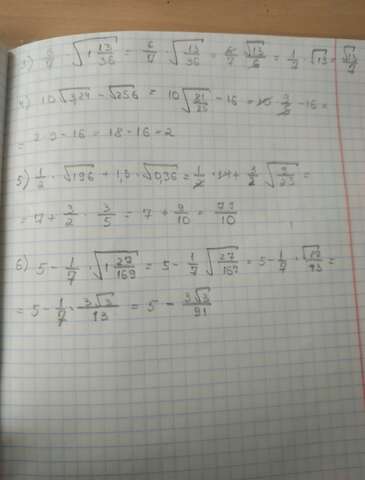 3) 6/7 · √(1 13/36) = 6/7 · √(13/36) = 6/7 · √13/6 = 1/7 · √13 = √13/7
4) 10√3,24 − √256 = 10√(81/25) − 16 = 10 · 9/5 − 16 =
= 2·9 − 16 = 18 − 16 = 2
5) 1/2 · √196 + 1,5 · √0,36 = 1/2 · 14 + 3/2 √(9/25) =
= 7 + 3/2 · 3/5 = 7 + 9/10 = 79/10
6) 5 − 1/7 · √(1 27/169) = 5 − 1/7 √(27/169) = 5 − 1/7 · √27/13 =
= 5 − 1/7 · 3√3/13 = 5 − 3√3/91